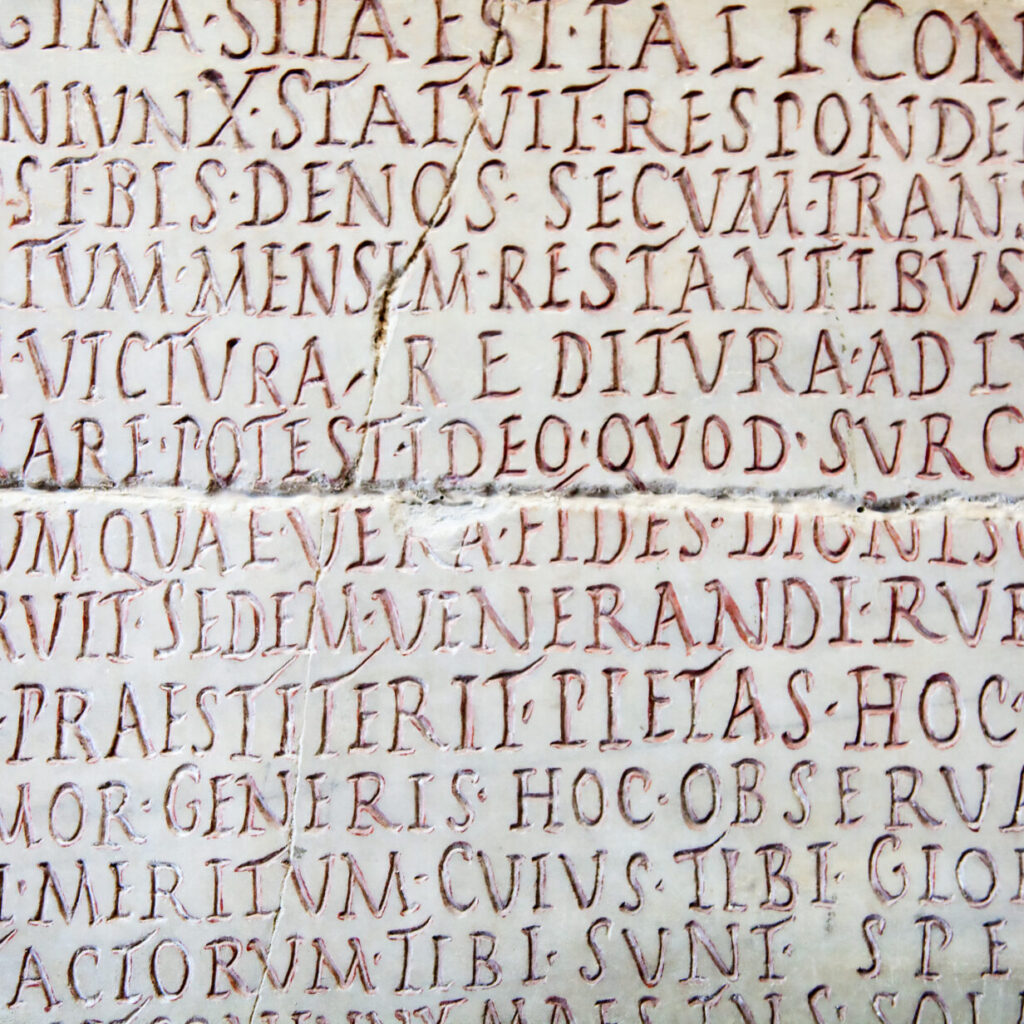 GINA·SITA·EST·TALI·CON
NIVNX·STATVIT·RESPONDE
ST·BIS·DENOS·SECVM·TRANS
TUM·MENSEM·RESTANTIBUS
VICTVRA·REDITVRA·AD
ARE·POTEST·IDEO·QVOD·SVRG
UM QVAE VERA·FIDES·DIGNIS
RVIT·SEDEM·VENERANDI·RVB
PRAESTITERIT·PIETAS·HOC·
MOR·GENERIS·HOC·OBSERVA
I·MERITVM·CVIVS·TIBI·GLOR
ACTORVM·TIBI·SVNT·SPE